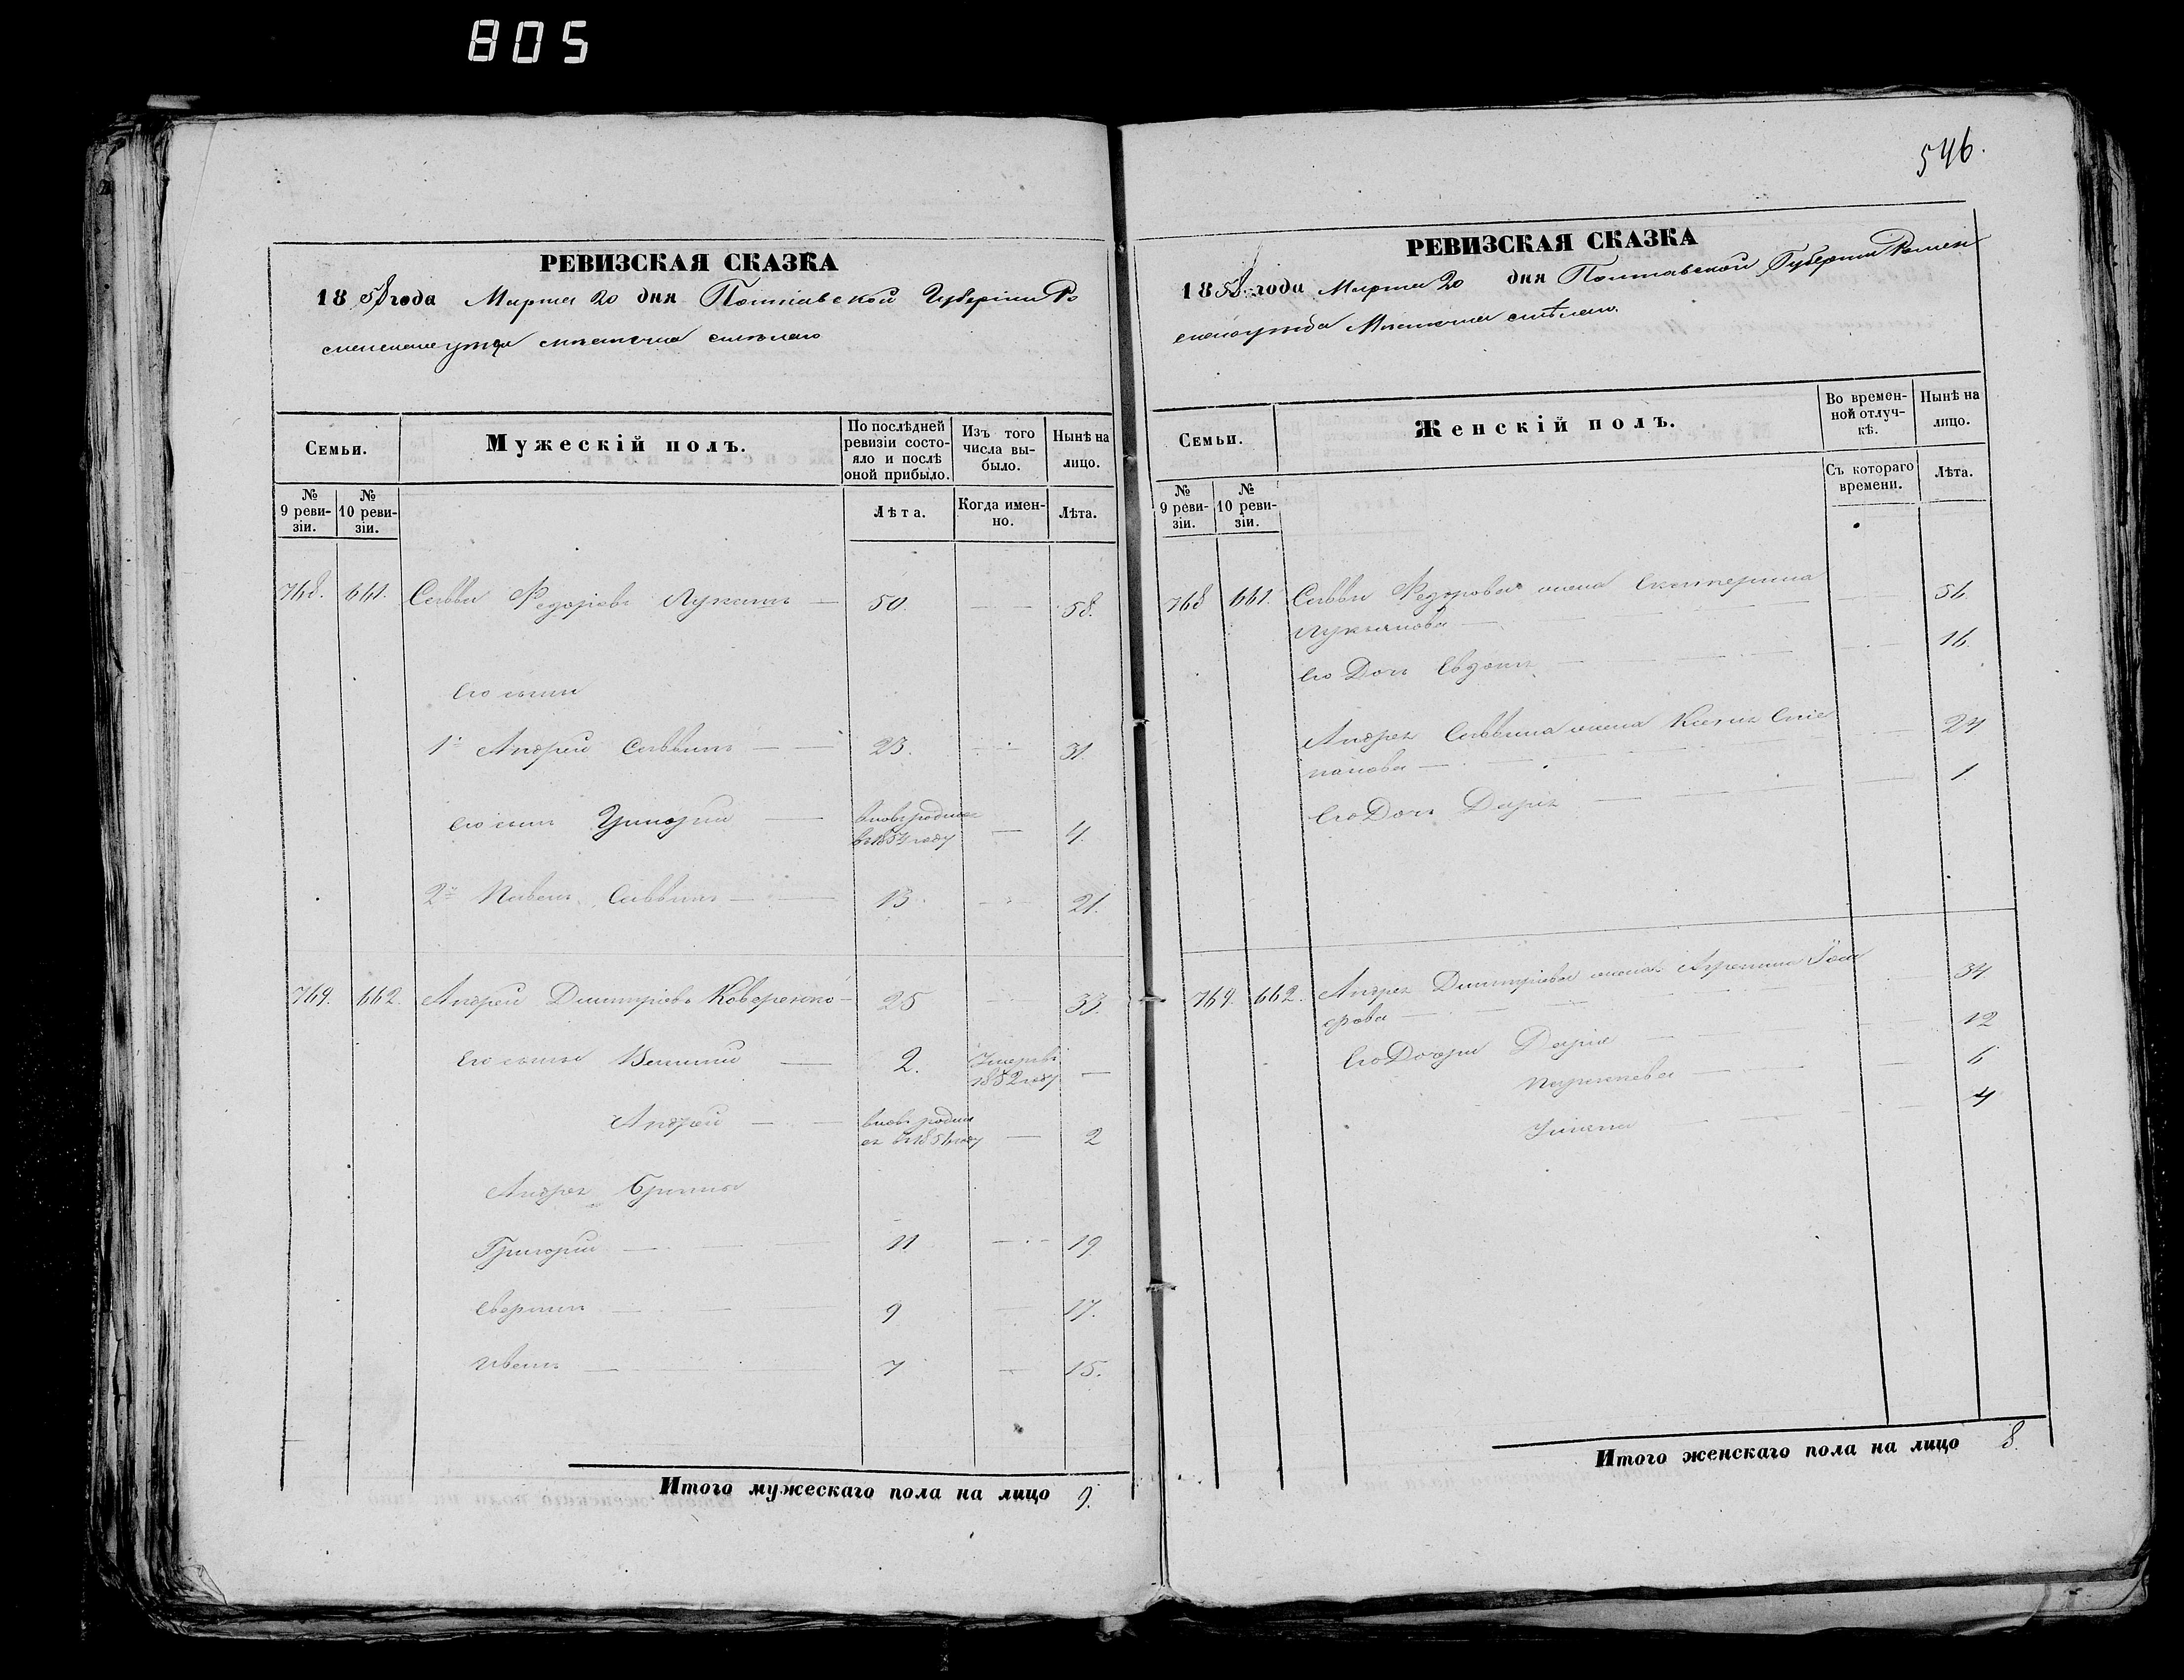 805
546.
РЕВИЗСКАЯ СКАЗКА
1858 года Марта 20 дня Полтавской Губерніи Ро
менскаго уезда местечка смелаго
Семьи.
Мужескій полъ.
По послѣдней ревизіи состояло и послѣ оной прибыло.
Изъ того числа выбыло.
Нынѣ на лицо.
№ 9 ревизіи.
№ 10 ревизіи.
Лѣта.
Когда именно.
Лѣта.
768. 661. Савва Федоровъ — 50. — 58.
Его сыны
1й Андрей Саввинъ — 23. — 31.
его сынъ Григорій — вновь родился въ 1854 году — 4.
2й Павелъ Саввинъ — 13. — 21.
769. 662. Андрей Дмитріевъ Коверенко — 25 — 33.
Его сыны — 2. Умеръ въ 1852 году —
Андрей — вновь родился въ 1856 году — 2
Андрея братья
Григорій — 11 — 19
9 — 17.
Иванъ — 7 — 15.
Итого мужескаго пола на лицо 9.
РЕВИЗСКАЯ СКАЗКА
1858 года Марта 20 дня Полтавской Губерніи Ромен
скаго уезда Местечка смѣлаго.
Семьи.
Женскій полъ.
Во временной отлучкѣ.
Нынѣ на лицо.
№ 9 ревизіи.
№ 10 ревизіи.
Съ котораго времени.
Лѣта.
768 661. Саввы Федорова жена Екатерина
Лукьянова — 56.
Его Дочь — 16.
Андрея Саввина жена Ксенія Сте
панова — 24
Его Дочь Дарія — 1
769. 662. Андрея Дмитріева жена
— 34
Его Дочери Дарія — 12
— 6
— 4
Итого женскаго пола на лицо 8.